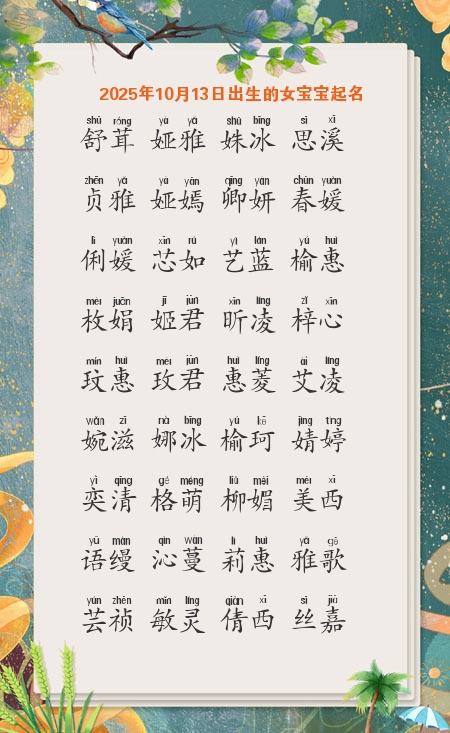 2025年10月13日出生的女宝宝起名
shū róng yà yǎ shū bīng sī xī
舒茸 娅雅 姝冰 思溪
zhēn yǎ yà yān qīng yán chūn yuán
贞雅 娅嫣 卿妍 春媛
lì yuán xīn rú yì lán yú huì
俐媛 芯如 艺蓝 榆惠
méi juān jī jūn xīn líng zǐ xīn
枚娟 姬君 昕凌 梓心
mín huì méi jūn huì líng ài líng
玟惠 玫君 惠菱 艾凌
wǎn zī nà bīng yú kē jìng tíng
婉滋 娜冰 榆珂 婧婷
yì qīng gé méng liǔ mèi měi xī
奕清 格萌 柳媚 美西
yǔ màn qìn wàn lì huì yǎ gē
语缦 沁蔓 莉惠 雅歌
yún zhēn mǐn líng qiàn xī sī jiā
芸祯 敏灵 倩西 丝嘉